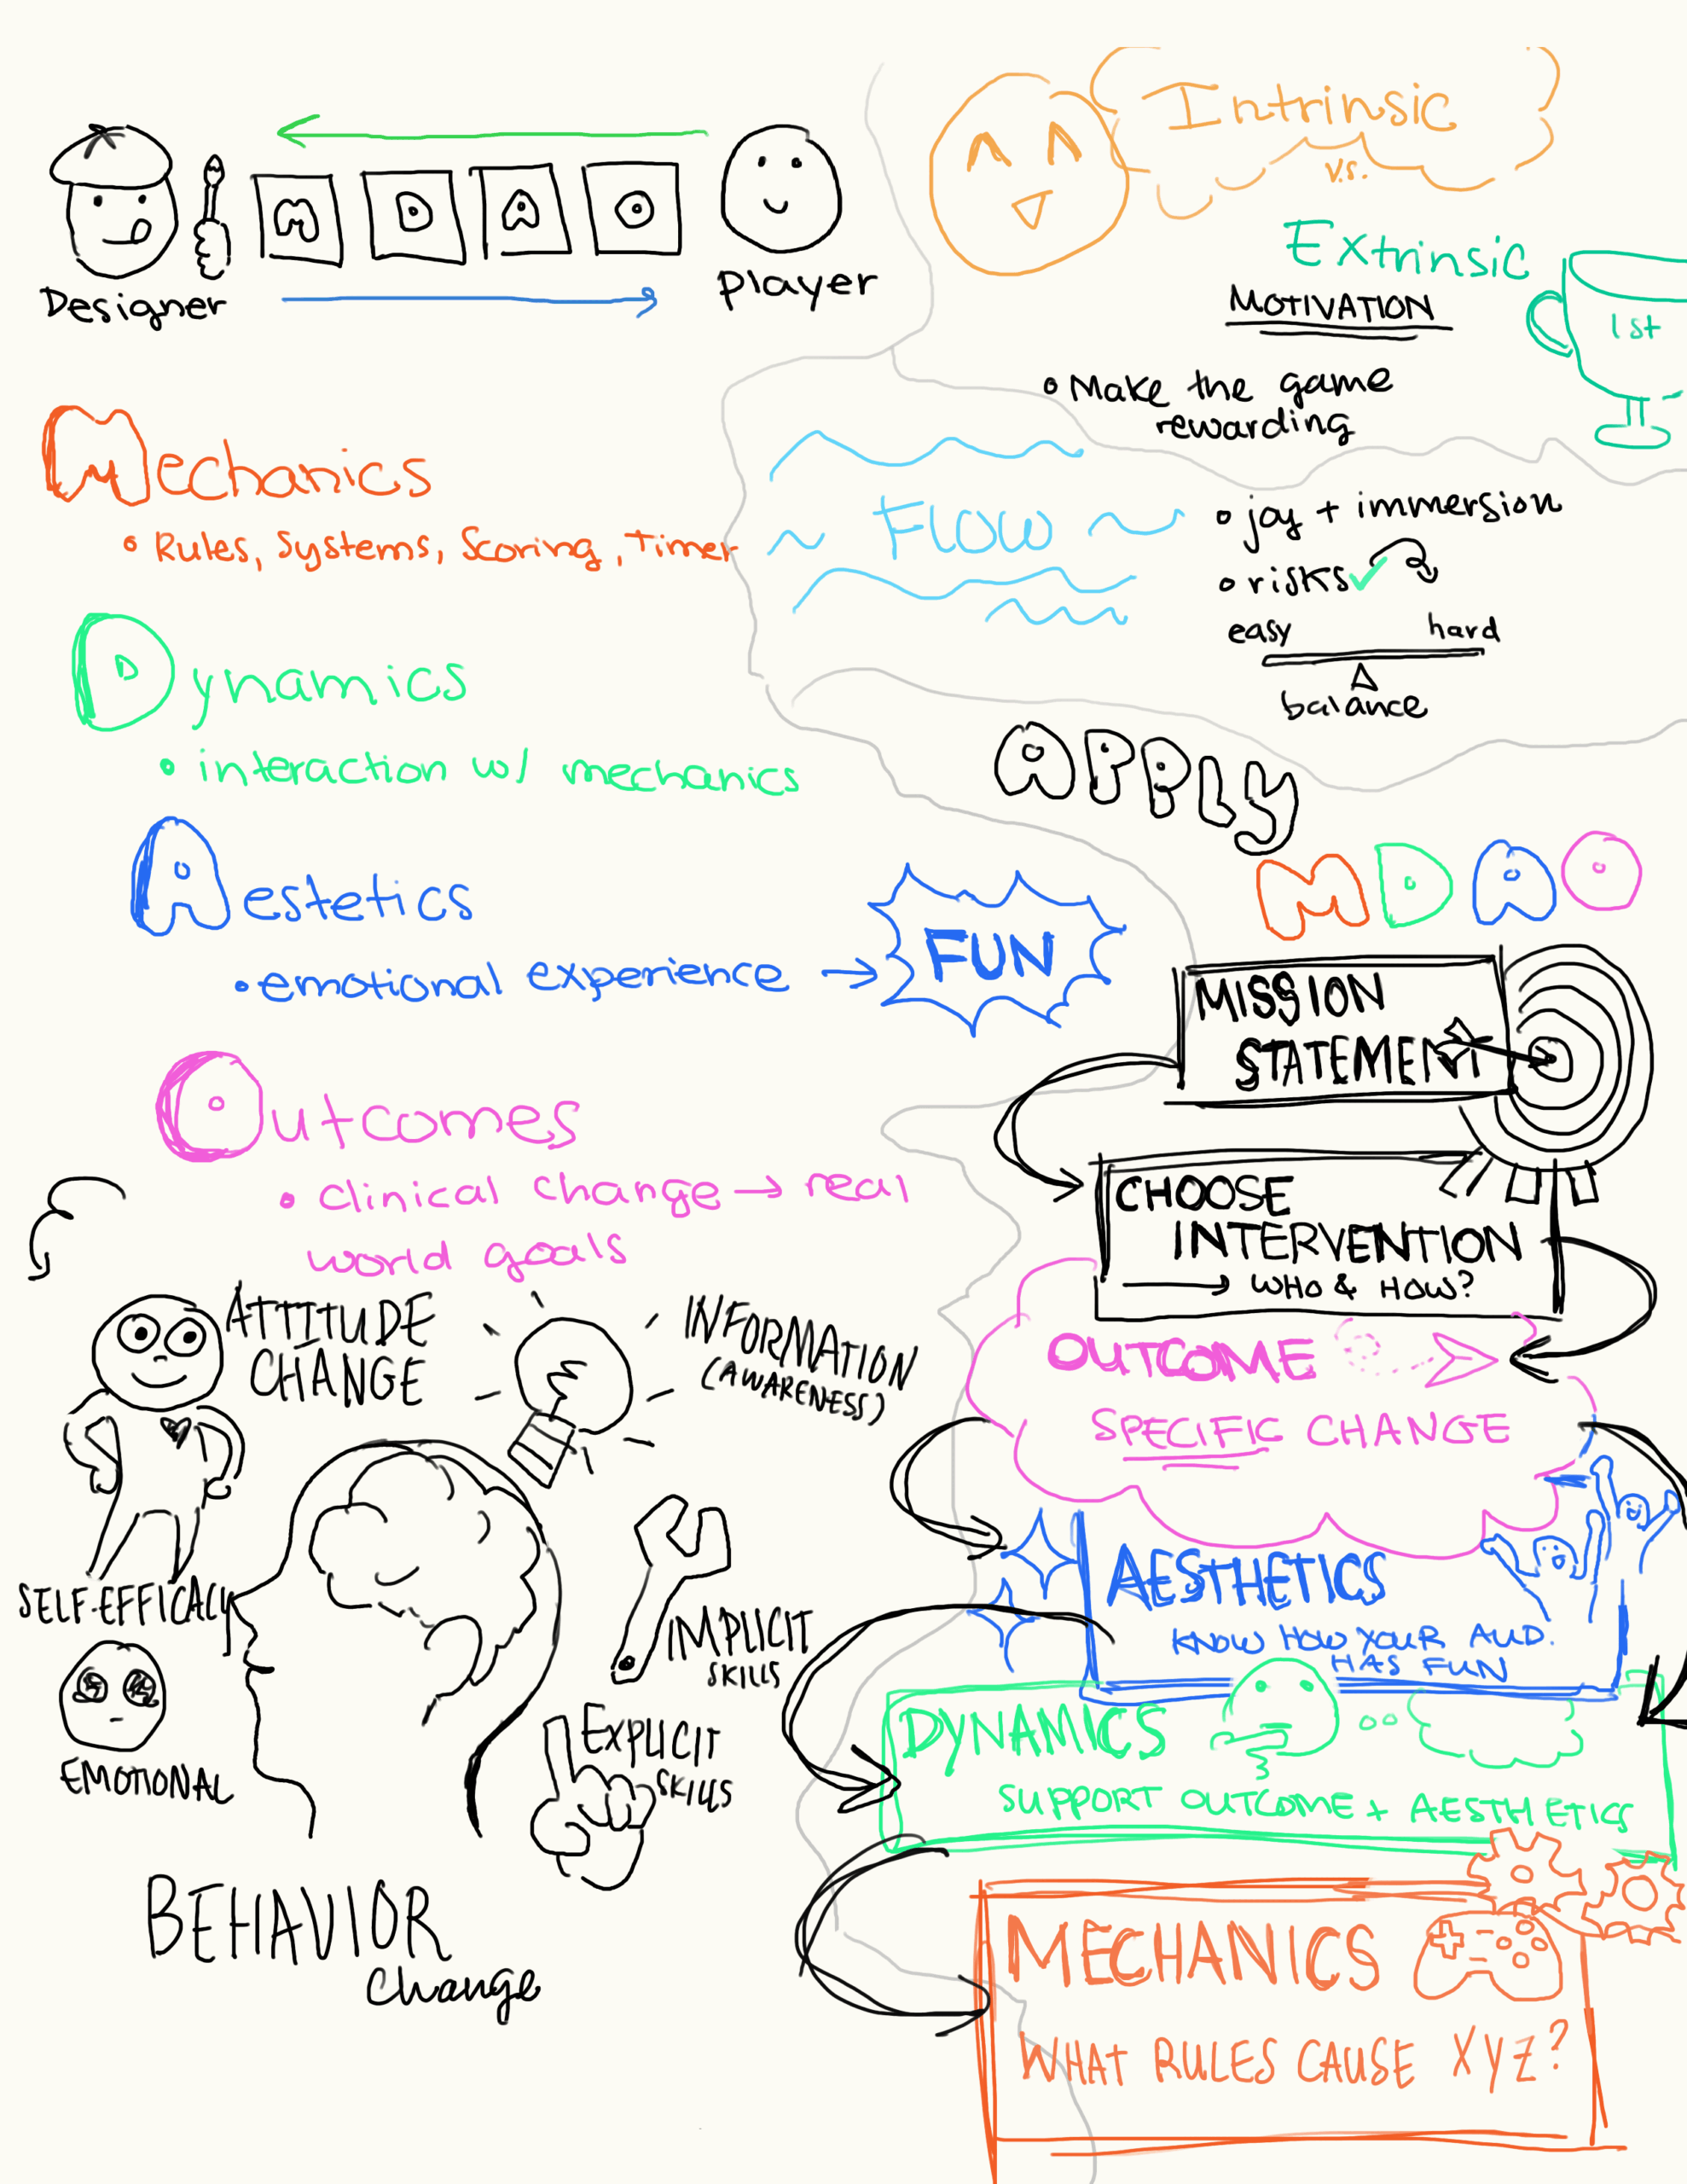 M D A O
Designer
player
Mechanics
• Rules, Systems, Scoring, Timer
Dynamics
• interaction w/ mechanics
Aestetics
• emotional experience → FUN
Outcomes
• clinical change → real
world goals
ATTITUDE
CHANGE
INFORMATION
(AWARENESS)
SELF-EFFICACY
IMPLICIT
SKILLS
EMOTIONAL
EXPLICIT
SKILLS
BEHAVIOR
change
Intrinsic
v.s.
Extrinsic
MOTIVATION
1st
• Make the game
rewarding
~ FLOW ~
• joy + immersion
• risks ✓
easy hard
balance
APPLY
MDAO
MISSION
STATEMENT
CHOOSE
INTERVENTION
→ WHO & HOW?
OUTCOME
SPECIFIC CHANGE
AESTHETICS
KNOW HOW YOUR AUD.
HAS FUN
DYNAMICS
SUPPORT OUTCOME + AESTHETICS
MECHANICS
WHAT RULES CAUSE XYZ?